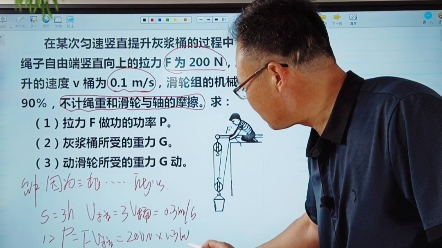 在某次匀速竖直提升灰浆桶的过程中
绳子自由端竖直向上的拉力 F 为 200 N，
升的速度 v 桶为 0.1 m/s，滑轮组的机械
90%，不计绳重和滑轮与轴的摩擦。求：
（1）拉力 F 做功的功率 P。
（2）灰浆桶所受的重力 G。
（3）动滑轮所受的重力 G 动。
因为
S=3h